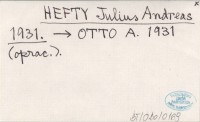 HEFTY Julius Andreas
1931. → OTTO A. 1931
(oprac.).